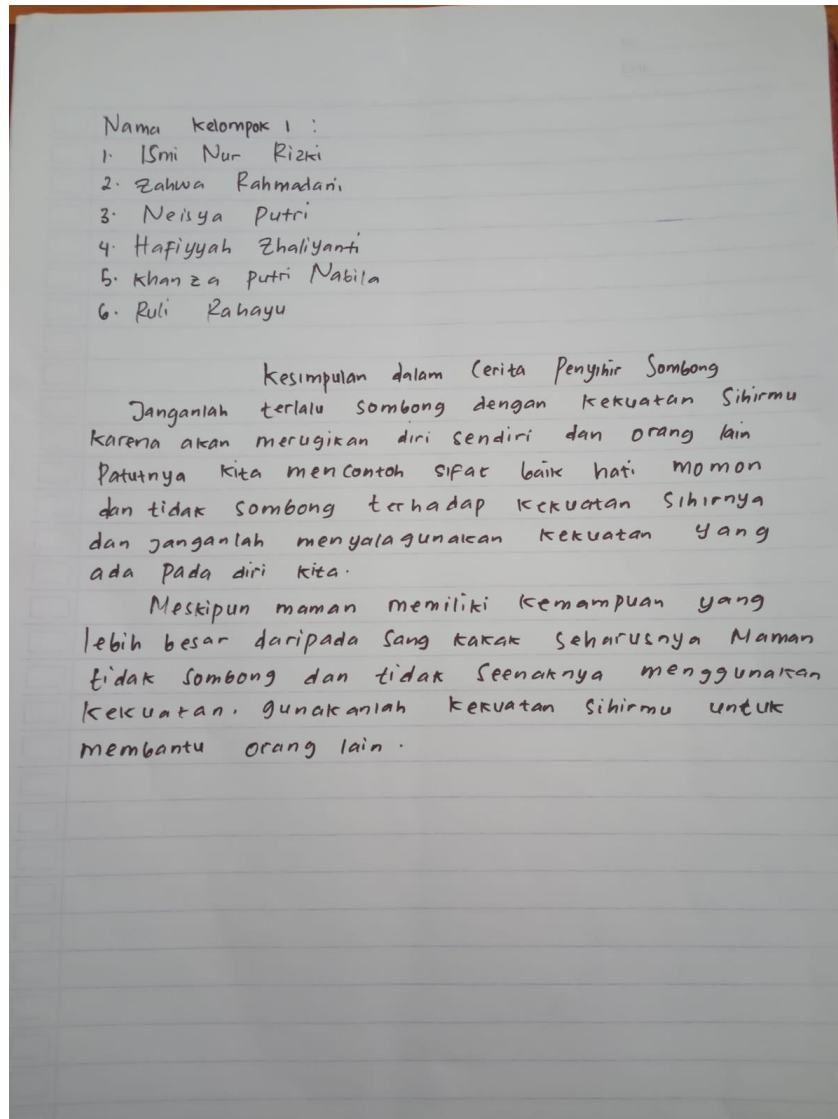 Nama Kelompok 1 :
1. Ismi Nur Rizki
2. Zahwa Rahmadani
3. Neisya Putri
4. Hafiyyah Zhaliyanti
5. Khanza Putri Nabila
6. Ruli Rahayu
Kesimpulan dalam Cerita Penyihir Sombong
Janganlah terlalu sombong dengan kekuatan Sihirmu
karena akan merugikan diri sendiri dan orang lain
Patutnya kita mencontoh sifat baik hati momon
dan tidak sombong terhadap kekuatan Sihirnya
dan janganlah menyalagunakan kekuatan yang
ada pada diri kita.
Meskipun maman memiliki kemampuan yang
lebih besar daripada Sang kakak Seharusnya Maman
tidak Sombong dan tidak Seenaknya menggunakan
kekuatan. gunakanlah kekuatan Sihirmu untuk
membantu orang lain.